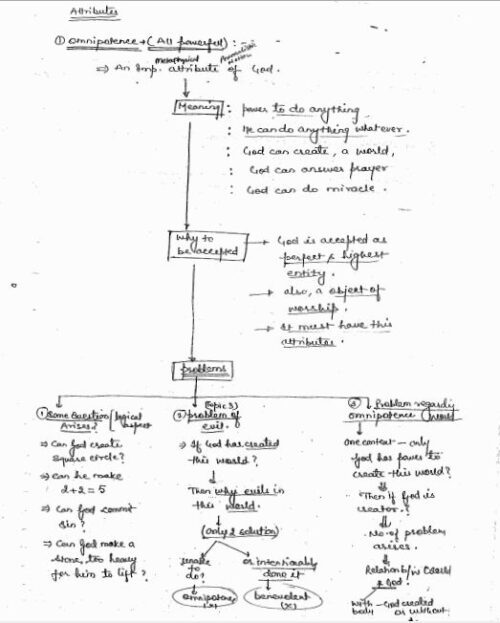 Attributes
① Omnipotence → (All powerful) : -
metaphysical
⇒ An Imp. attribute of God.
Meaning : power to do anything
: He can do anything whatever.
: God can create, a world,
: God can answer prayer
: God can do miracle.
Why to be accepted → God is accepted as
perfect & highest
entity.
→ also, a object of
worship.
→ It must have this
attributes.
problems
① Some Question / logical aspect
Arises?
⇒ Can God create
square circle?
⇒ Can he make
2+2=5
⇒ Can God commit
Sin?
⇒ Can God make a
stone, too heavy
for him to lift?
(Topic 3)
② problem of
evil.
⇒ If God has created
this world?
Then why evils in
this world.
(Only 2 solution)
unable
to
do?
omnipotence
(x)
or intentionally
done it
benevolent
(x)
③ Problem regardg
omnipotence / World
One context - only
God has power to
create this world?
Then if God is
creator?
No. of problem
arises.
Relation b/w World
& God.
with - God created
body or without